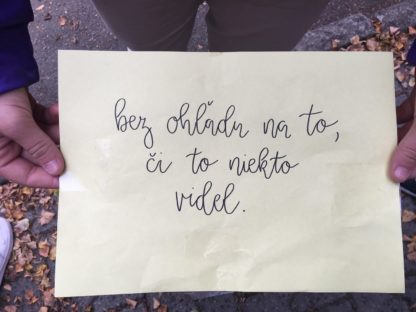 bez ohľadu na to,
či to niekto
videl.